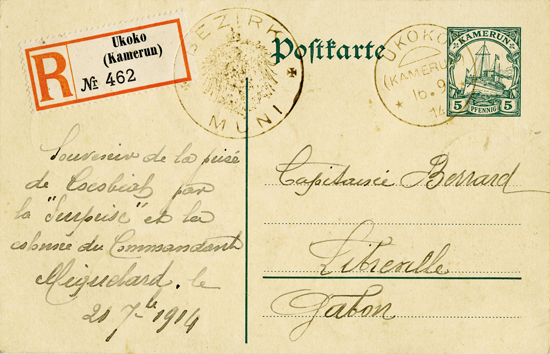 R
Ukoko
(Kamerun)
№ 462
BEZIRK
MUNI
Postkarte
UKOKO
(KAMERUN)
16.9
14
KAMERUN
5 PFENNIG 5
Souvenir de la prise
de Cocobeat par
la "Surprise" et la
colonne du Commandant
Miquelard, le
21 7bre 1914
Capitaine Berrard
Libreville
Gabon